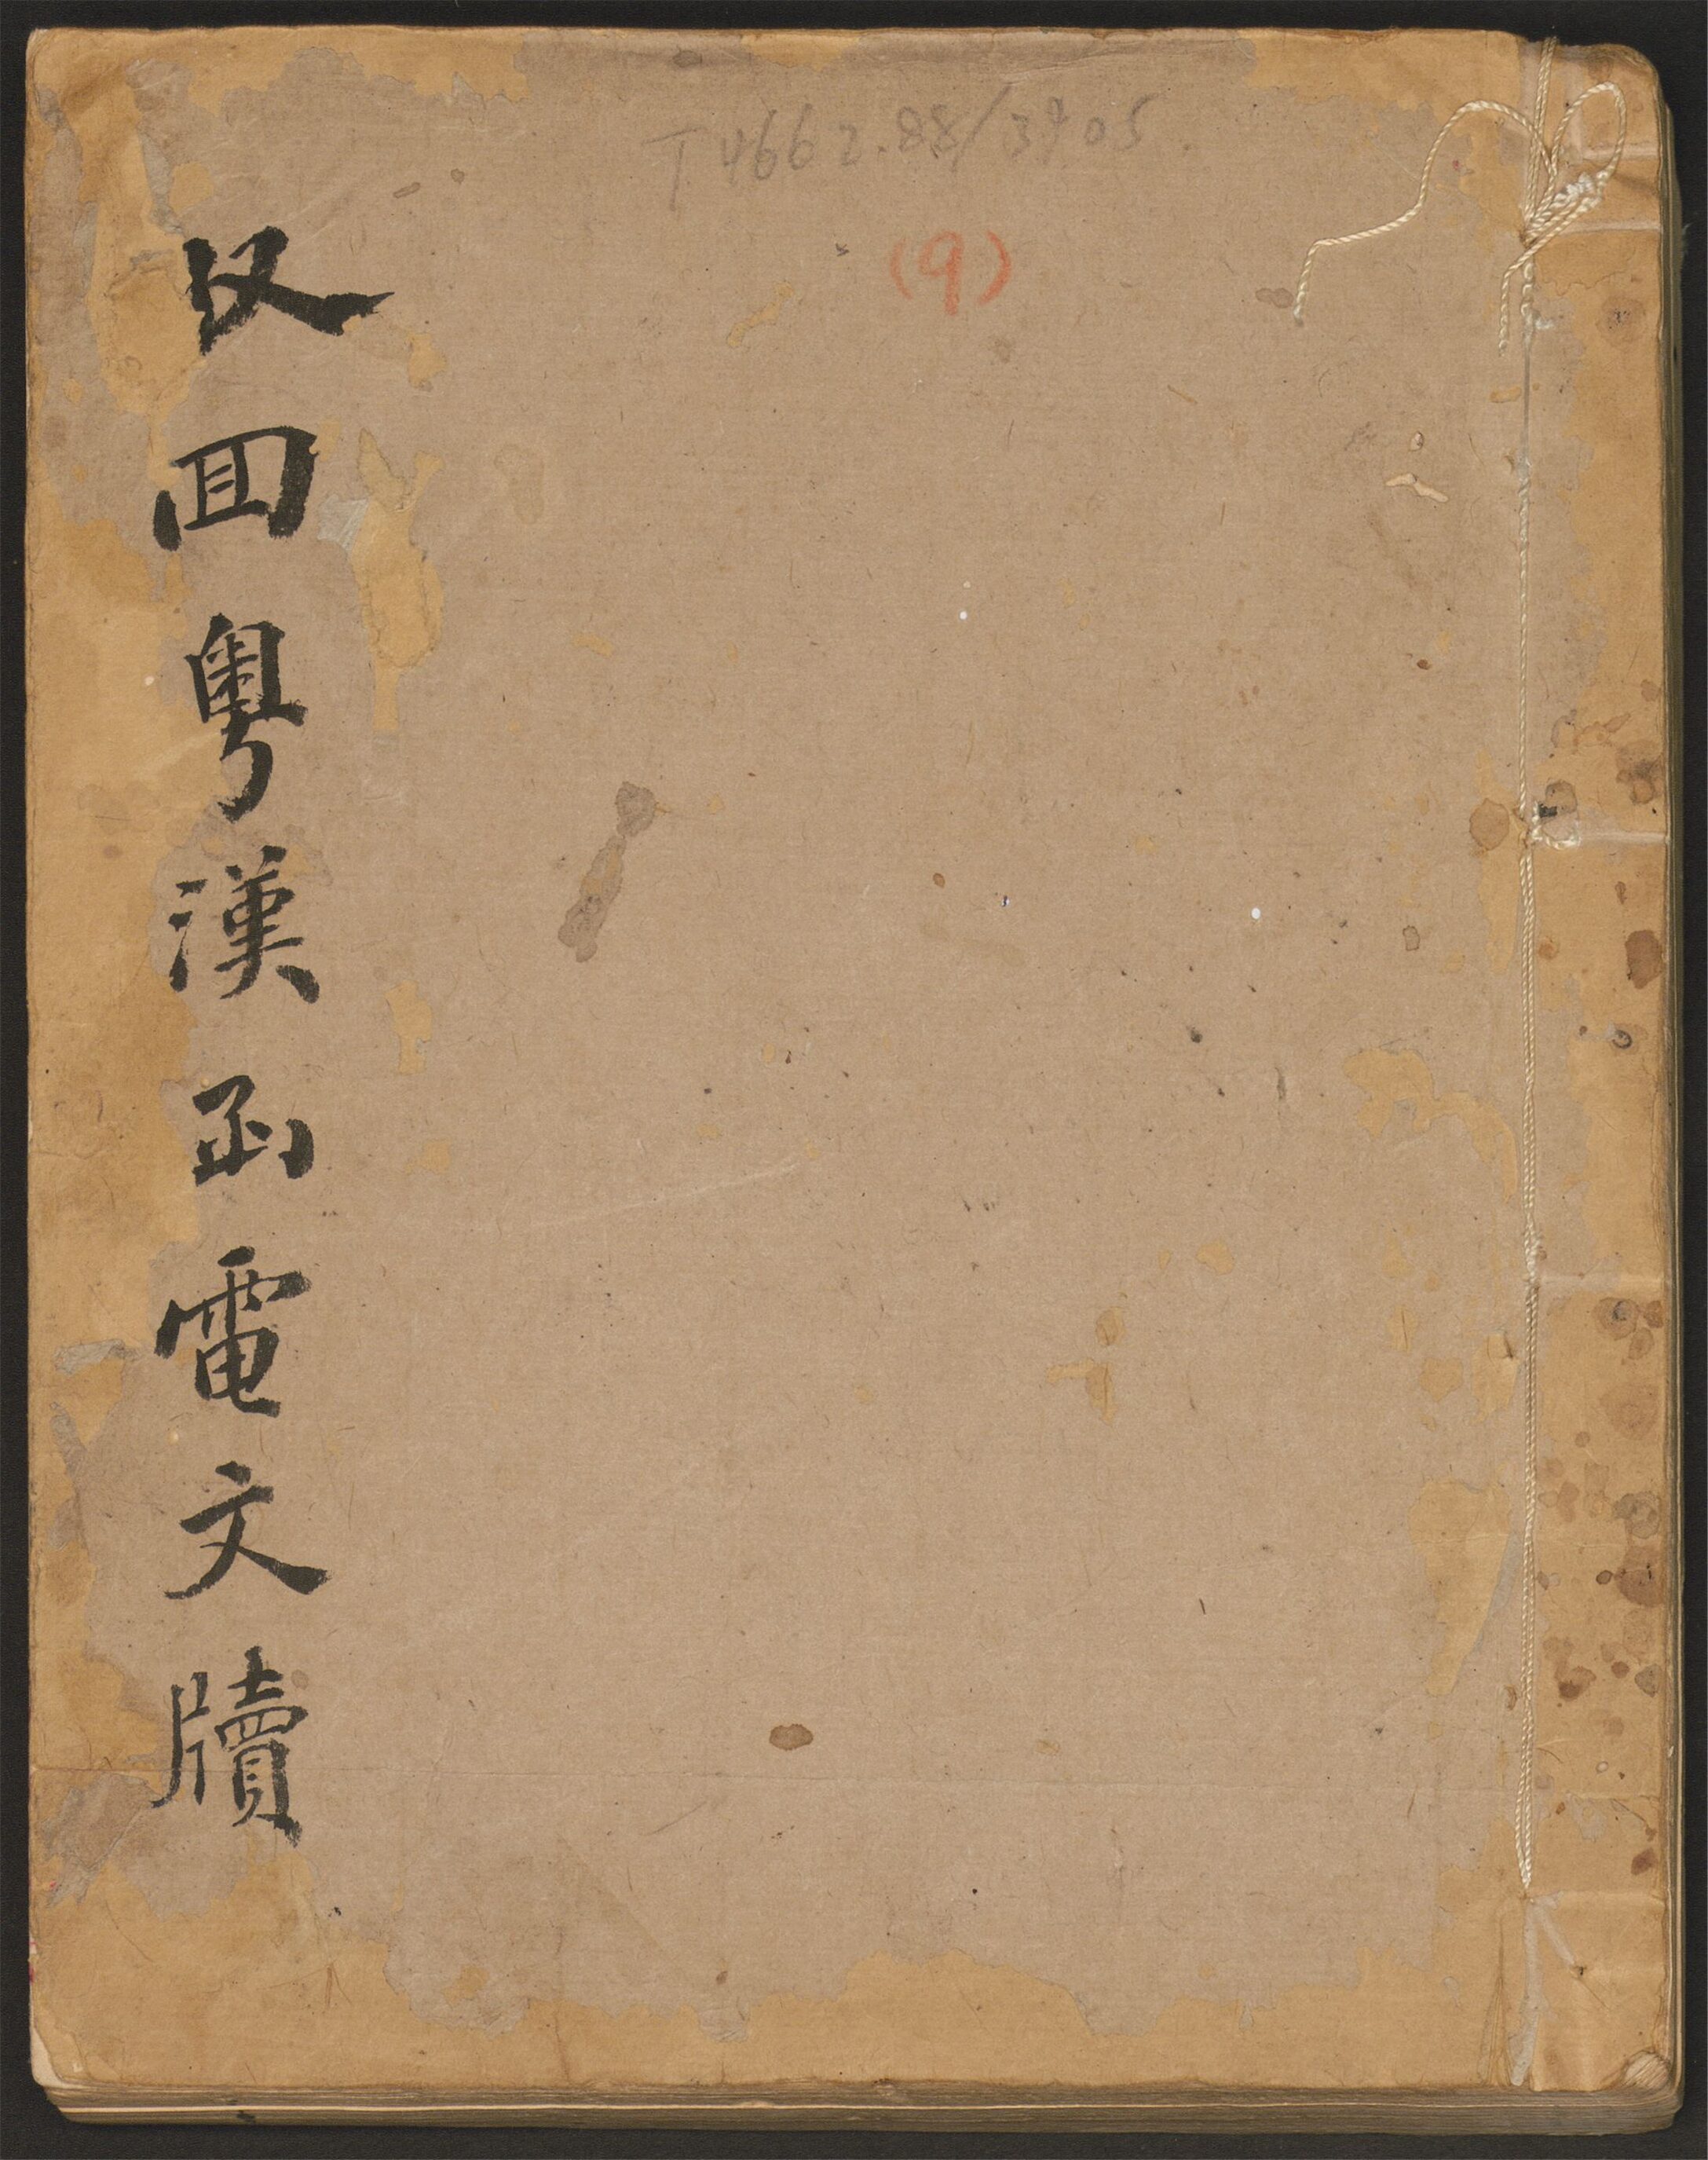 T 4662.88/3905.
(9)
収囬粤漢函電文牘